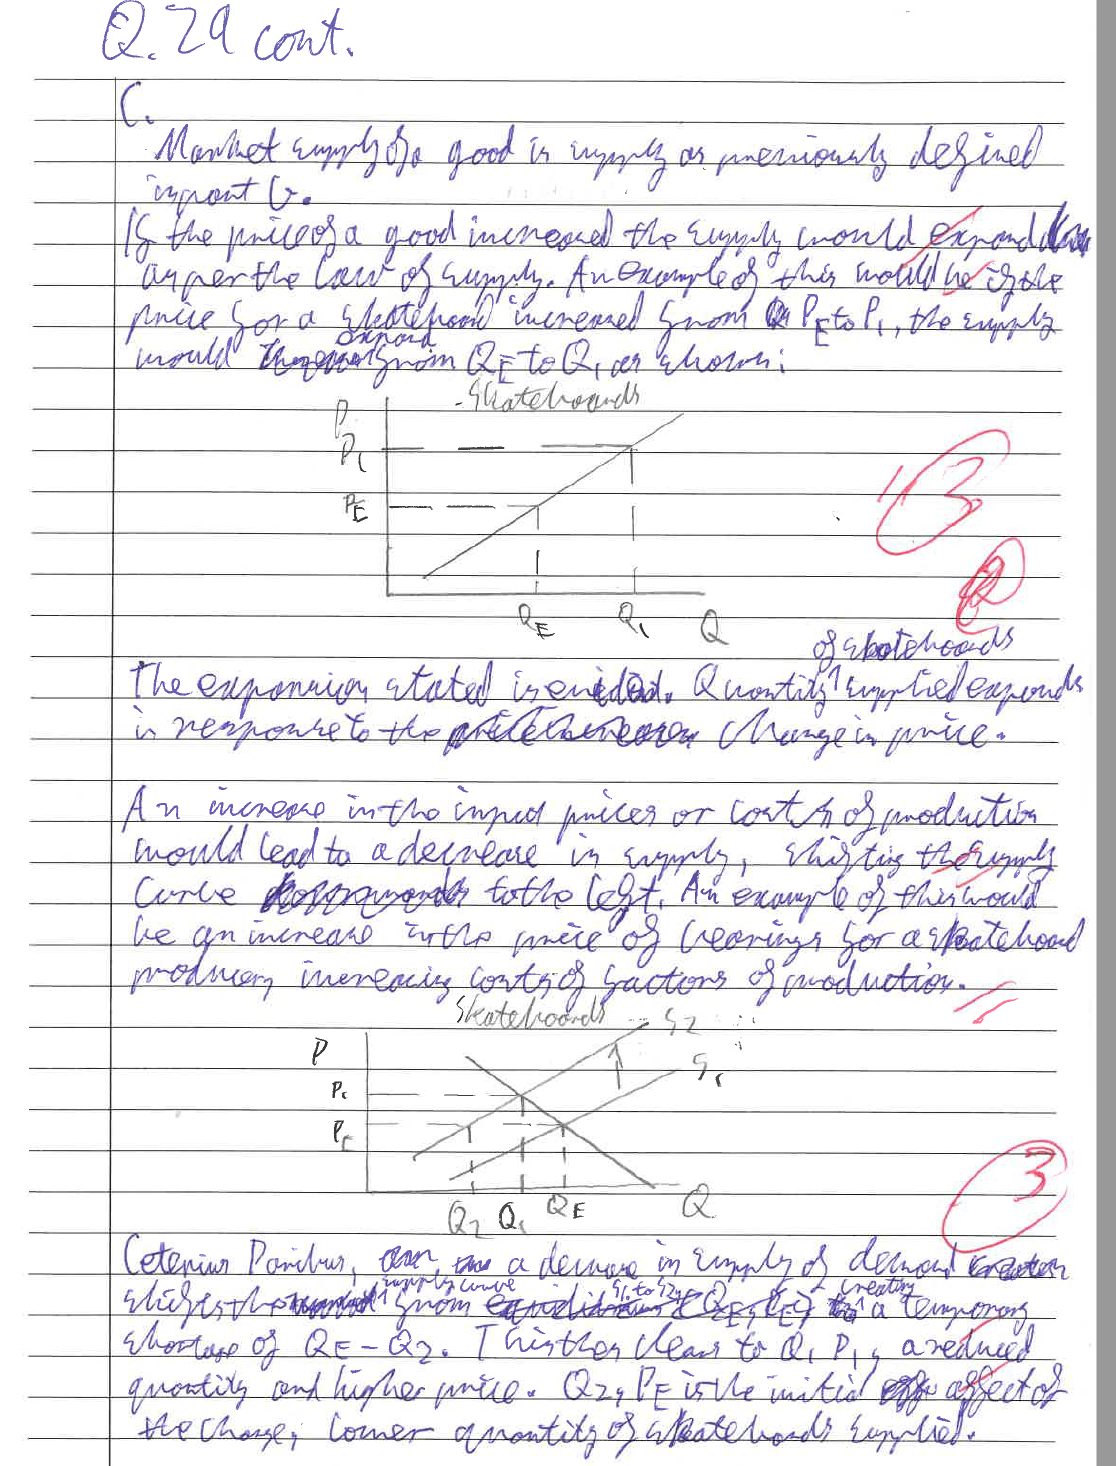 Q. 29 cont.
C.
Market supply of a good is supply as previously defined
in part b.
If the price of a good increased the supply would expand
as per the law of supply. An example of this would be if the
price for a skateboard increased from PE to P1, the supply
expand
would from QE to Q1 as shown:
Skateboards
P
P1
PE
13
QE Q1 Q
of skateboards
The expansion stated is evident. Quantity supplied expands
in response to the change in price.
An increase in the input prices or costs of production
would lead to a decrease in supply, shifting the supply
curve to the left. An example of this would
be an increase in the price of bearings for a skateboard
producer, increasing costs of factors of production.
Skateboards
S2
P
S1
P1
PE
3
Q2 Q1 QE Q
Ceterius Paribus, a decrease in supply of demand
supply curve S1 to S2 creating
shifts the from QE, PE, a temporary
shortage of QE - Q2. This then clears to Q1 P1, a reduced
quantity and higher price. Q2, PE is the initial affect of
the change, lower quantity of skateboards supplied.